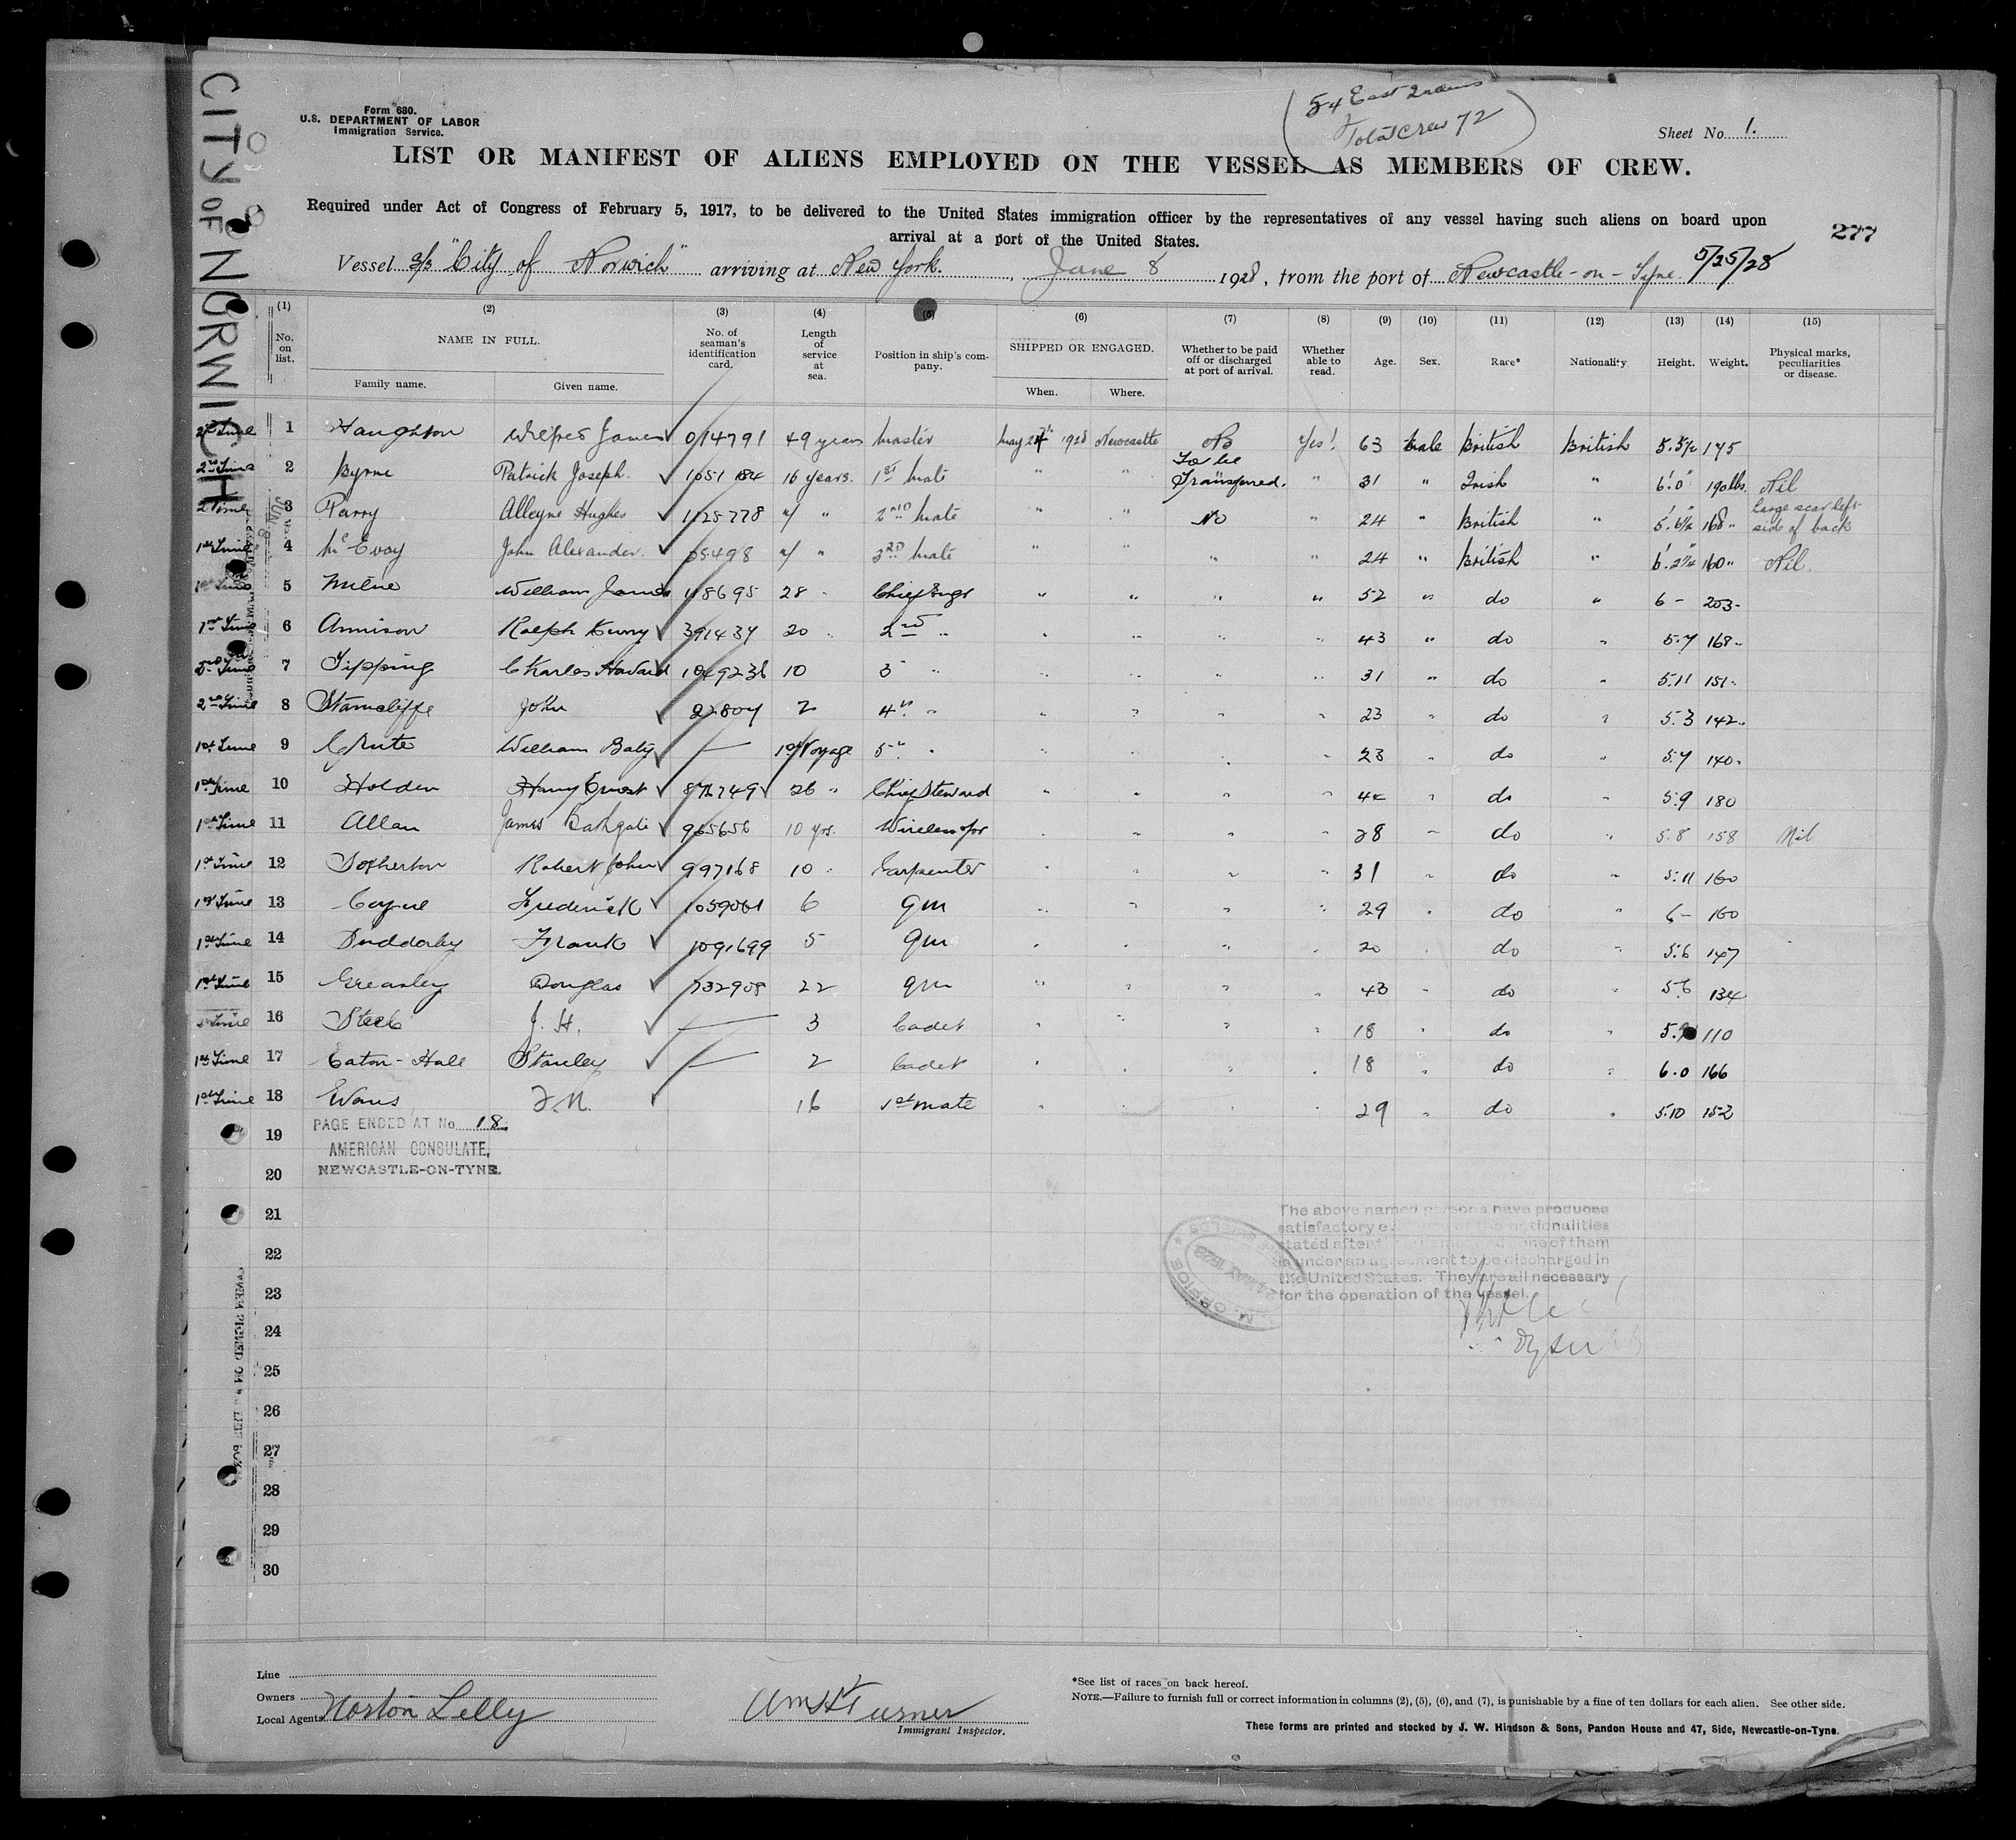 CITY OF NORWICH
Form 680.
U.S. DEPARTMENT OF LABOR
Immigration Service.
(54 East
Total Crew 72)
Sheet No. 1.
LIST OR MANIFEST OF ALIENS EMPLOYED ON THE VESSEL AS MEMBERS OF CREW.
Required under Act of Congress of February 5, 1917, to be delivered to the United States immigration officer by the representatives of any vessel having such aliens on board upon
arrival at a port of the United States.
277
Vessel S/S "City of Norwich" arriving at New York. , June 8 1928, from the port of Newcastle-on-Tyne. 5/25/28
(1) (2) (3) (4) (5) (6) (7) (8) (9) (10) (11) (12) (13) (14) (15)
No. on list. NAME IN FULL. No. of seaman's identification card. Length of service at sea. Position in ship's company. SHIPPED OR ENGAGED. Whether to be paid off or discharged at port of arrival. Whether able to read. Age. Sex. Race* Nationality Height. Weight. Physical marks, peculiarities or disease.
Family name. Given name. When. Where.
2nd Time 1 Haughton Wilfred James 014791 49 years Master May 24th 1928 Newcastle No Yes! 63 Male British British 5.5½ 175
2nd Time 2 Byrne Patrick Joseph. 1051184 16 years. 1st Mate " " To be Transferred. " 31 " Irish " 6'.0" 190 lbs. Nil
2 Time 3 Parry Alleyne Hughes 1125778 " 2ND Mate " " No " 24 " British " 168 " Large scar left side of back
1st Time 4 McEvoy John Alexander. " 3RD Mate " " " " 24 " British " 6'.2¼ 160 " Nil.
1st Time 5 Milne William James 118695 28 " Chief Engr " " " " 52 " do " 6 - 203 -
1st Time 6 Annison Ralph 391434 20 " 2nd " " " " " 43 " do " 5.7 168 "
2nd Time 7 Tipping Charles Howard 1049236 10 3 " " " " " " 31 " do " 5.11 151 "
2nd Time 8 Stancliffe John 22804 2 4th " " " " " 23 " do " 5.3 142 "
1st Time 9 William — 1st Voyage 5 " " " " " " 23 " do " 5.7 140 "
1st Time 10 Holden Harry Ernest 876749 26 " Chief Steward " " " " 42 " do " 5.9 180
1st Time 11 Allan James Bathgate 965656 10 yrs. Wireless opr " " " " 28 " do " 5.8 158 Nil
1st Time 12 Sotherton Robert John 997168 10 " Carpenter " " " " 31 " do " 5.11 160
1st Time 13 Coyne Frederick 1059061 6 qm " " " " 29 " do " 6 - 160
1st Time 14 Frank 1091699 5 qm " " " " 20 " do " 5.6 147
1st Time 15 Greasley Douglas 732908 22 qm " " " " 43 " do " 5.6 134
Time 16 J. H. — 3 Cadet " " " " 18 " do " 110
1st Time 17 Eaton-Hall Stanley — 2 Cadet " " " " 18 " do " 6.0 166
1st Time 18 Evans 16 1st mate " " " " 29 " do " 5.10 152
PAGE ENDED AT No. 18.
AMERICAN CONSULATE,
NEWCASTLE-ON-TYNE.
19
20
21
22
23
24
25
26
27
28
29
30
The above named persons have produced
satisfactory evidence of the nationalities
stated after
is under an agreement to be discharged in
the United States. They are all necessary
for the operation of the vessel.
Line
Owners
Local Agents Norton Lilly
Wm H Turner
Immigrant Inspector.
*See list of races on back hereof.
NOTE.—Failure to furnish full or correct information in columns (2), (5), (6), and (7), is punishable by a fine of ten dollars for each alien. See other side.
These forms are printed and stocked by J. W. Hindson & Sons, Pandon House and 47, Side, Newcastle-on-Tyne.